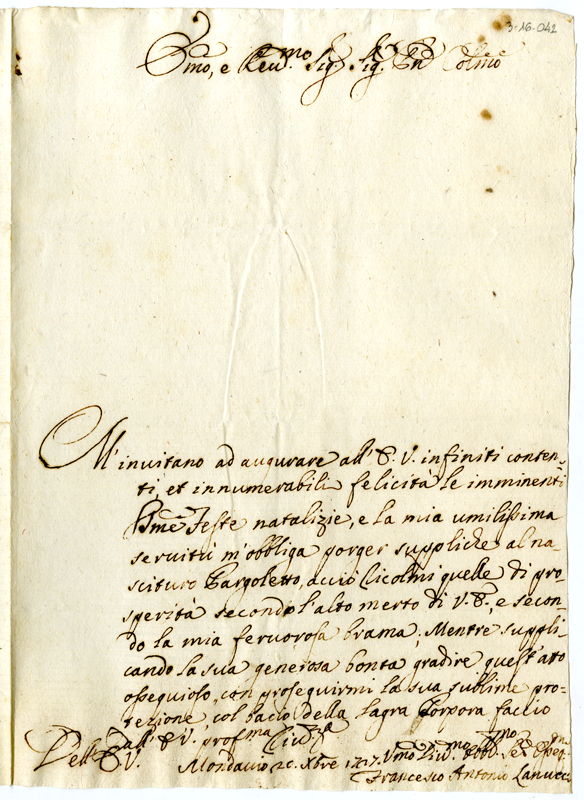 3-16-042
Emo, e Reud.mo Sig. Sig. Pñ Colmo
M'inuitano ad augurare all' E. V. infiniti conten-
ti, et innumerabili felicità le imminenti
Feste natalizie, e la mia umilissima
seruitù m'obbliga porger suppliche al na-
scituro Pargoletto, acciò Licolmi quelle di pro-
sperità secondo l'alto merto di V. E., e secon-
do la mia feruorosa brama. Mentre suppli-
cando la sua generosa bontà gradire quest'atto
ossequioso, con proseguirmi la sua sublime pro-
tezione, col bacio della Sagra Porpora faccio
all' E. V. prof.ma
Dell' E. V.
Mondauio Xbre 1717. Vmo
Francesco Antonio